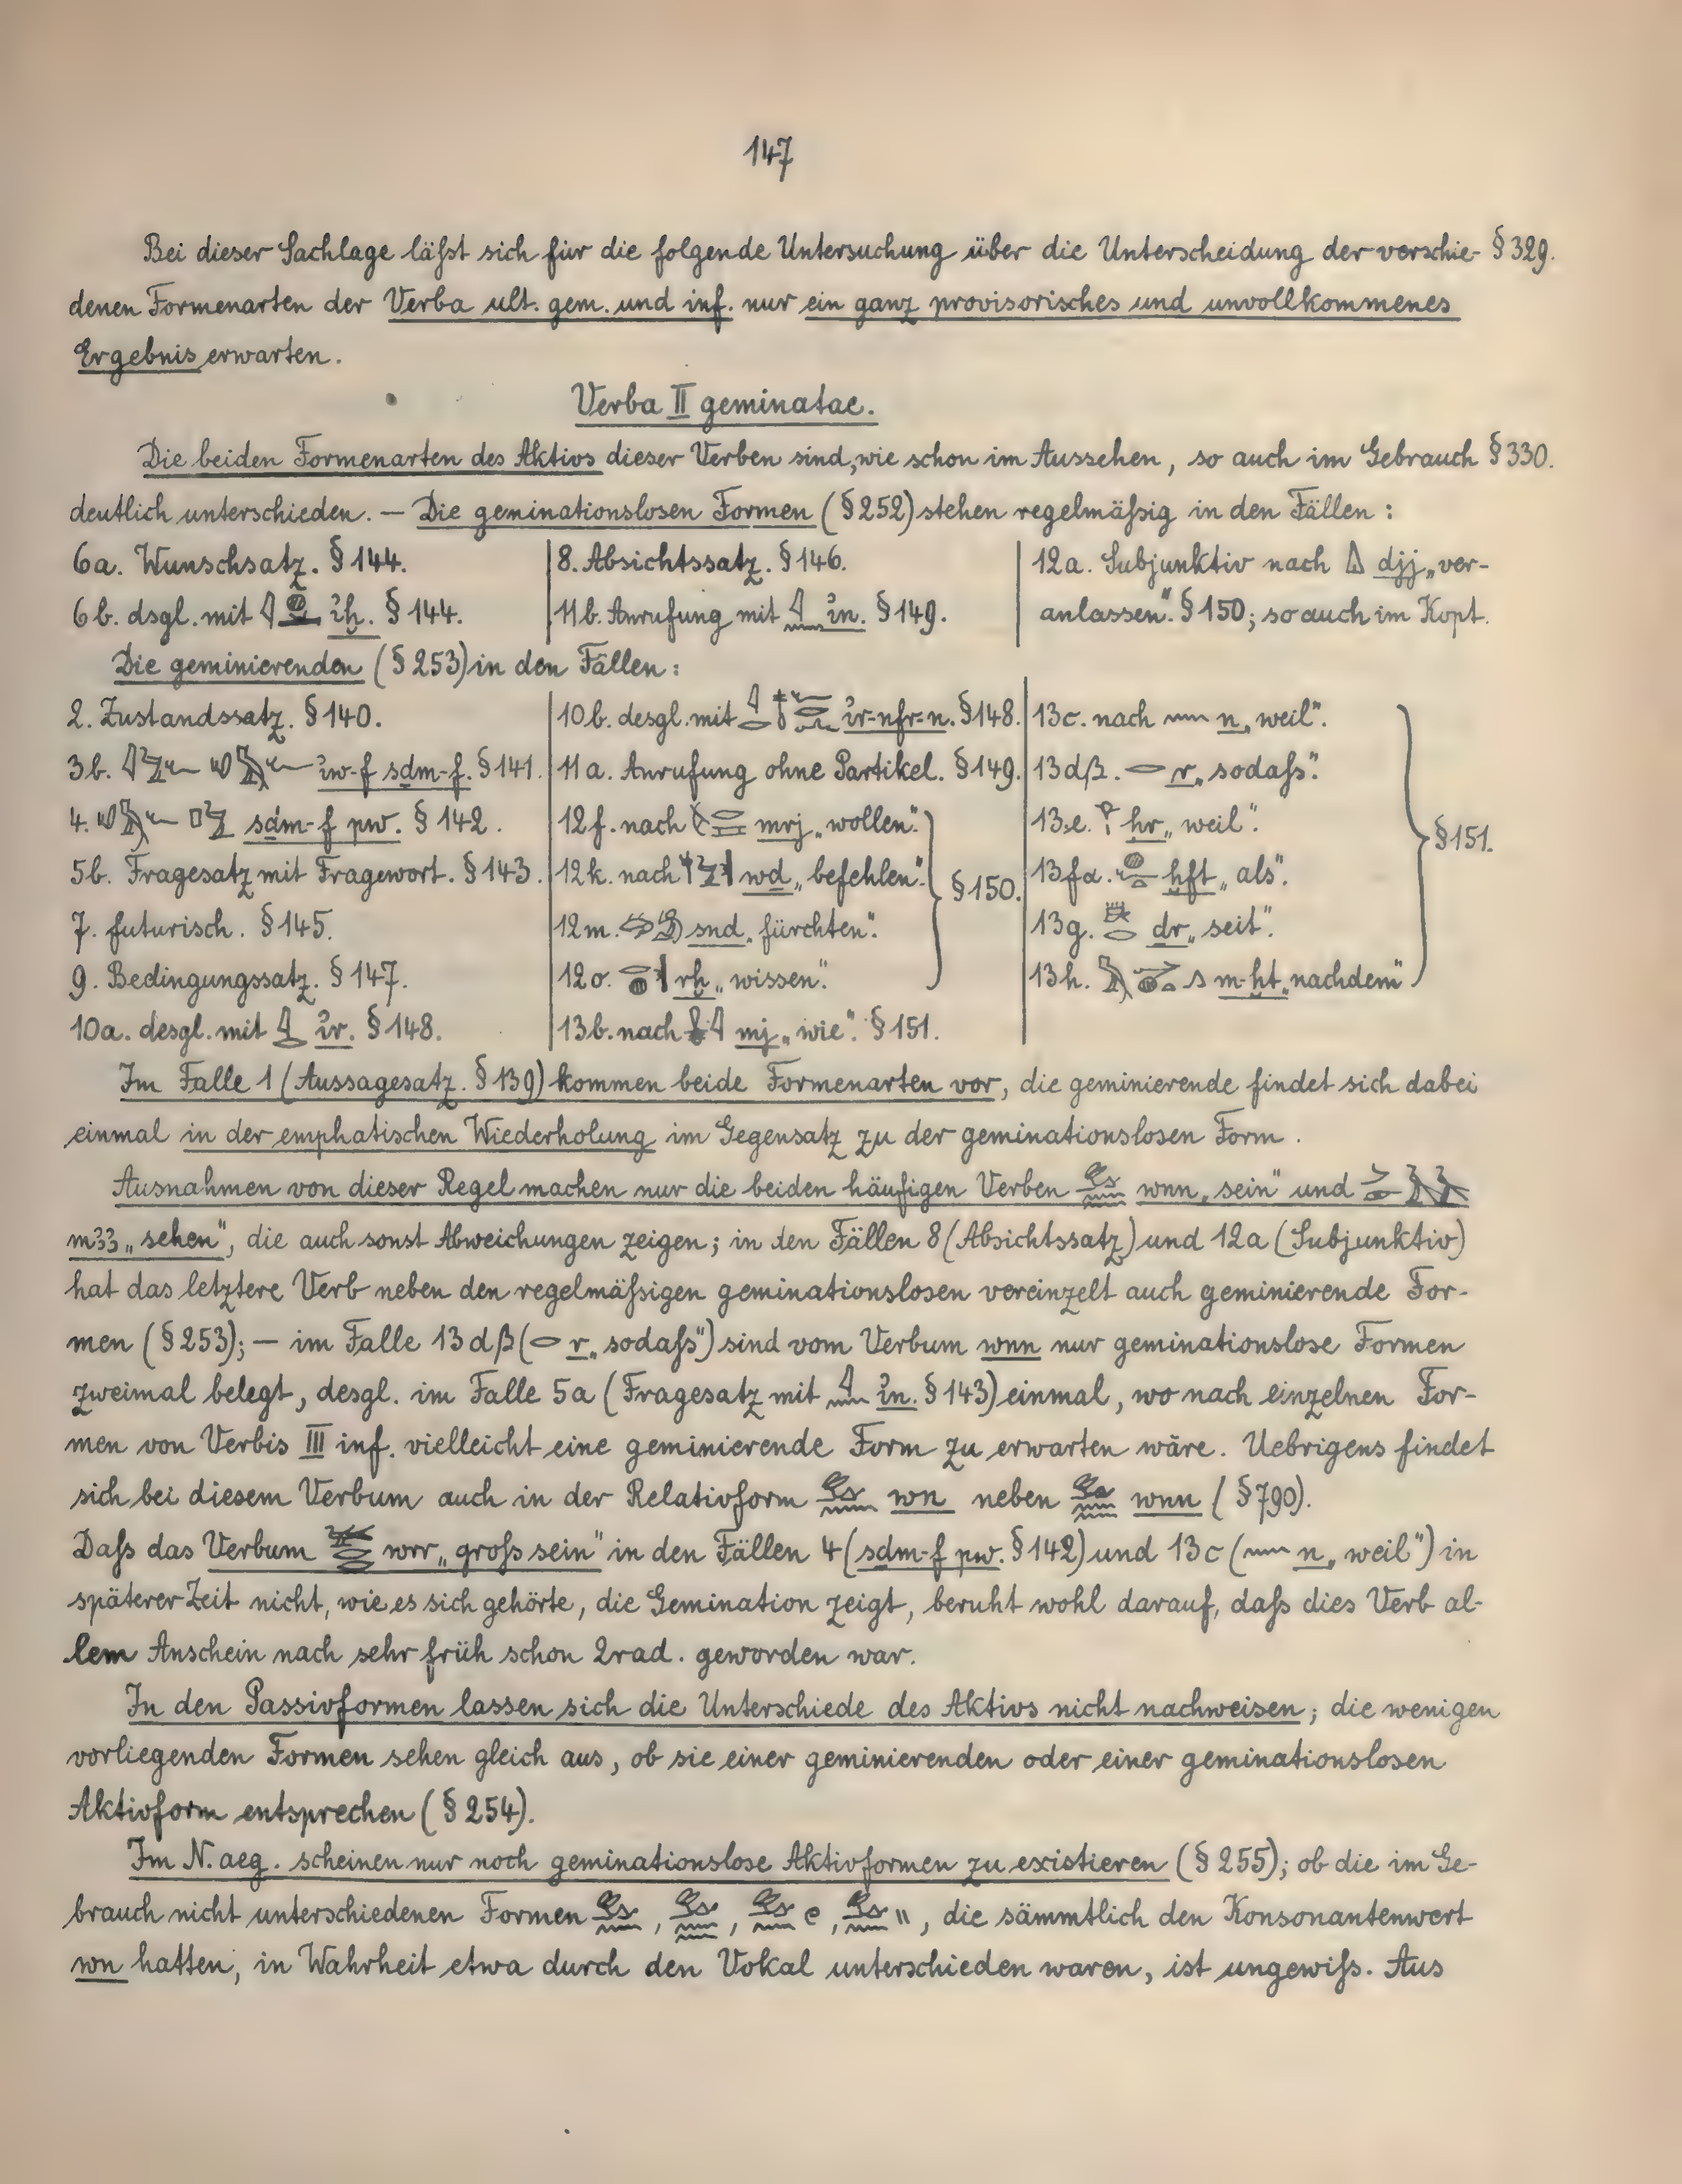 147
Bei dieser Sachlage läßt sich für die folgende Untersuchung über die Unterscheidung der verschie- § 329.
denen Formenarten der Verba ult. gem. und inf. nur ein ganz provisorisches und unvollkommenes
Ergebnis erwarten.
Verba II geminatae.
Die beiden Formenarten des Aktivs dieser Verben sind, wie schon im Aussehen, so auch im Gebrauch § 330.
deutlich unterschieden. — Die geminationslosen Formen (§ 252) stehen regelmäßig in den Fällen:
6a. Wunschsatz. § 144.
6b. dsgl. mit ꞽḫ. § 144.
8. Absichtssatz. § 146.
11b. Anrufung mit ꞽn. § 149.
12a. Subjunktiv nach djj „ver-
anlassen“. § 150; so auch im Kopt.
Die geminierenden (§ 253) in den Fällen:
2. Zustandssatz. § 140.
3b. ꞽw-f sḏm-f. § 141.
4. sḏm-f pw. § 142.
5b. Fragesatz mit Fragewort. § 143.
7. futurisch. § 145.
9. Bedingungssatz. § 147.
10a. desgl. mit ꞽr. § 148.
10b. desgl. mit ꞽr-nfr-n. § 148.
11a. Anrufung ohne Partikel. § 149.
12f. nach mrj „wollen“.
12k. nach wḏ „befehlen“.
12m. snḏ „fürchten“.
12o. rḫ „wissen“.
§ 150.
13b. nach mj „wie“. § 151.
13c. nach n „weil“.
13dβ. r „sodaß“.
13e. ḥr „weil“.
13fα. ḫft „als“.
13g. ḏr „seit“.
13h. m-ḫt „nachdem“
§ 151.
Im Falle 1 (Aussagesatz. § 139) kommen beide Formenarten vor, die geminierende findet sich dabei
einmal in der emphatischen Wiederholung im Gegensatz zu der geminationslosen Form.
Ausnahmen von dieser Regel machen nur die beiden häufigen Verben wnn „sein“ und
mꜣꜣ „sehen“, die auch sonst Abweichungen zeigen; in den Fällen 8 (Absichtssatz) und 12a (Subjunktiv)
hat das letztere Verb neben den regelmäßigen geminationslosen vereinzelt auch geminierende For-
men (§ 253); — im Falle 13dβ (r „sodaß“) sind vom Verbum wnn nur geminationslose Formen
zweimal belegt, desgl. im Falle 5a (Fragesatz mit ꞽn. § 143) einmal, wo nach einzelnen For-
men von Verbis III inf. vielleicht eine geminierende Form zu erwarten wäre. Uebrigens findet
sich bei diesem Verbum auch in der Relativform wn neben wnn (§ 790).
Daß das Verbum wrr „groß sein“ in den Fällen 4 (sḏm-f pw. § 142) und 13c (n „weil“) in
späterer Zeit nicht, wie es sich gehörte, die Gemination zeigt, beruht wohl darauf, daß dies Verb al-
lem Anschein nach sehr früh schon 2rad. geworden war.
In den Passivformen lassen sich die Unterschiede des Aktivs nicht nachweisen; die wenigen
vorliegenden Formen sehen gleich aus, ob sie einer geminierenden oder einer geminationslosen
Aktivform entsprechen (§ 254).
Im N. aeg. scheinen nur noch geminationslose Aktivformen zu existieren (§ 255); ob die im Ge-
brauch nicht unterschiedenen Formen , , , , die sämmtlich den Konsonantenwert
wn hatten, in Wahrheit etwa durch den Vokal unterschieden waren, ist ungewiß. Aus